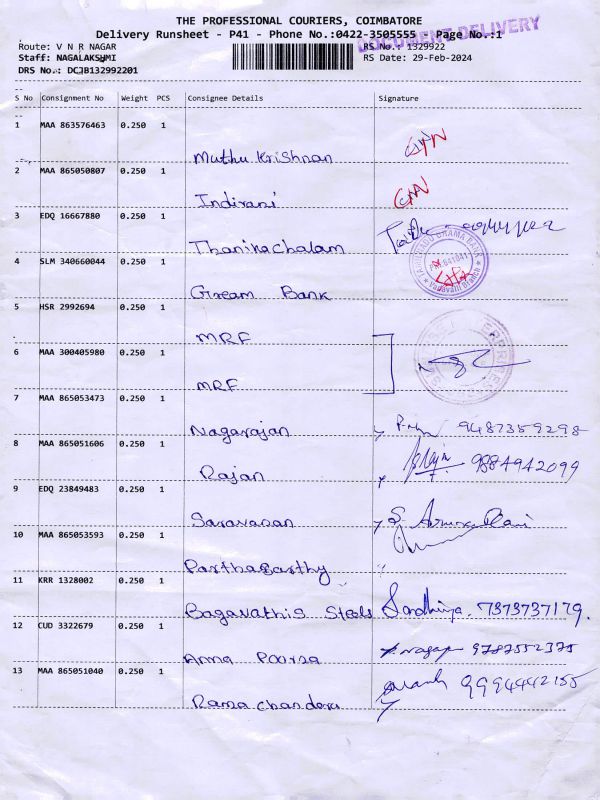 THE PROFESSIONAL COURIERS, COIMBATORE
DOCUMENT DELIVERY
Delivery Runsheet - P41 - Phone No.:0422-3505555 Page No.:1
Route: V N R NAGAR RS No.: 1329922
Staff: NAGALAKSHMI RS Date: 29-Feb-2024
DRS No.: DCJB132992201
S No Consignment No Weight PCS Consignee Details Signature
1 MAA 863576463 0.250 1
Muthu Krishnan
2 MAA 865050807 0.250 1
Indirani
3 EDQ 16667880 0.250 1
Thanikachalam
4 SLM 340660044 0.250 1
Gream Bank
5 HSR 2992694 0.250 1
MRF
6 MAA 300405980 0.250 1
MRF
7 MAA 865053473 0.250 1
Nagarajan 9487359298
8 MAA 865051606 0.250 1
Rajan 9884942099
9 EDQ 23849483 0.250 1
Saravanan S.
10 MAA 865053593 0.250 1
Parthasarthy
11 KRR 1328002 0.250 1
Bagavathis Steels Sandhiya. 7373737179.
12 CUD 3322679 0.250 1
Anna Poorna 9787552375
13 MAA 865051040 0.250 1
Rama chandera 9994442155